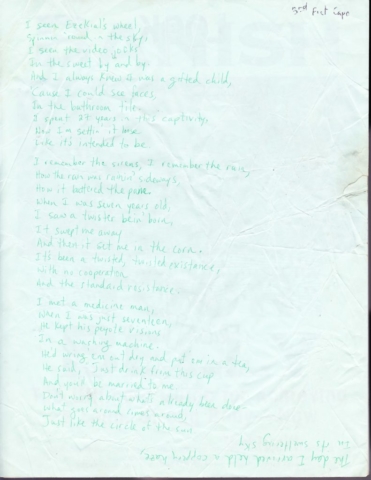 3rd Fret Capo
I seen Ezekial's wheel,
Spinnin' 'round in the sky,
I seen the video jocks
In the sweet by and by.
And I always knew I was a gifted child,
'Cause I could see faces,
In the bathroom tile.
I spent 27 years in this captivity,
Now I'm settin' it loose
Like it's intended to be
I remember the sirens, I remember the rain,
How the rain was rainin' sideways,
How it battered the pane.
When I was seven years old,
I saw a twister bein' born,
It swept me away
And then it set me in the corn.
It's been a twisted, twisted existance,
With no cooperation
And the standard resistance.
I met a medicine man,
When I was just seventeen,
He kept his peyote buttons
In a washing machine.
He'd wring 'em out dry and put 'em in a tea,
He said, "Just drink from this cup
And you'll be married to me.
Don't worry about what's already been done
What goes around comes around,
Just like the circle of the sun
The day I arrived, held a copper haze,
In its smothering sky